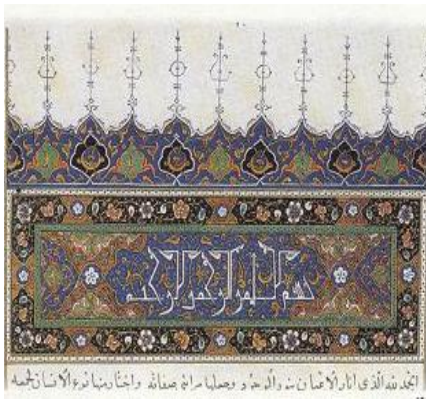 بسم الله الرحمن الرحيم
الحمد لله الذي انار الاعيان بنور الوجود وجعلها مرائي صفاته واختار منها نوع الانسان لجمعه